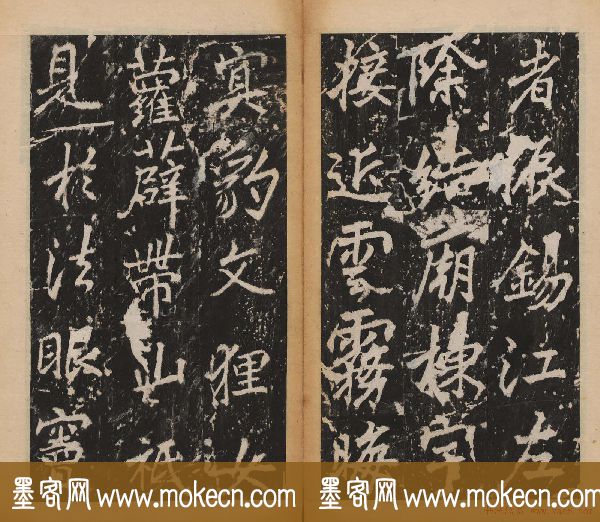 者振錫江左
除結廟棟宇
接近雲霧晦
冥豹文狸女
蘿薜帶山祗
見於法眼竇
墨客网 www.mokecn.com
墨客网 www.mokecn.com